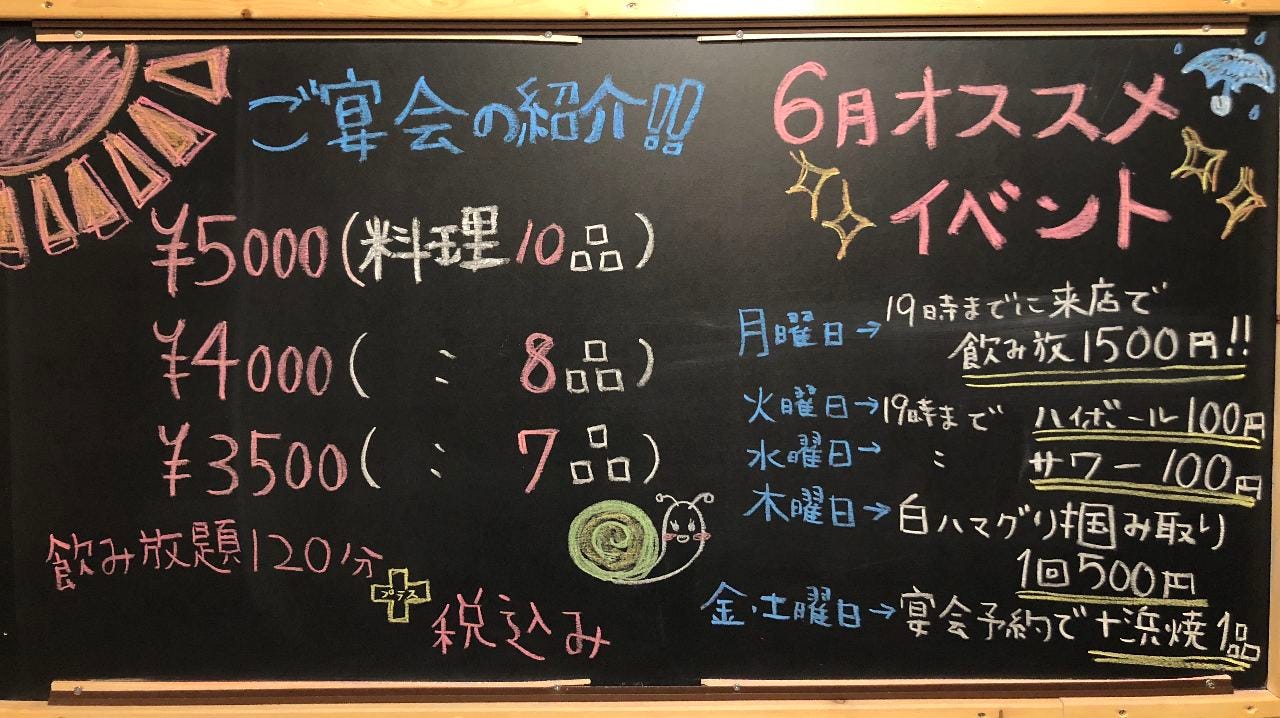 ご宴会の紹介!!
¥5000(料理10品)
¥4000( : 8品)
¥3500( : 7品)
飲み放題120分
プラス
税込み
6月オススメ
イベント
月曜日→19時までに来店で
飲み放1500円!!
火曜日→19時まで ハイボール100円
水曜日→ : サワー100円
木曜日→白ハマグリ掴み取り
1回500円
金・土曜日→宴会予約で+浜焼1品